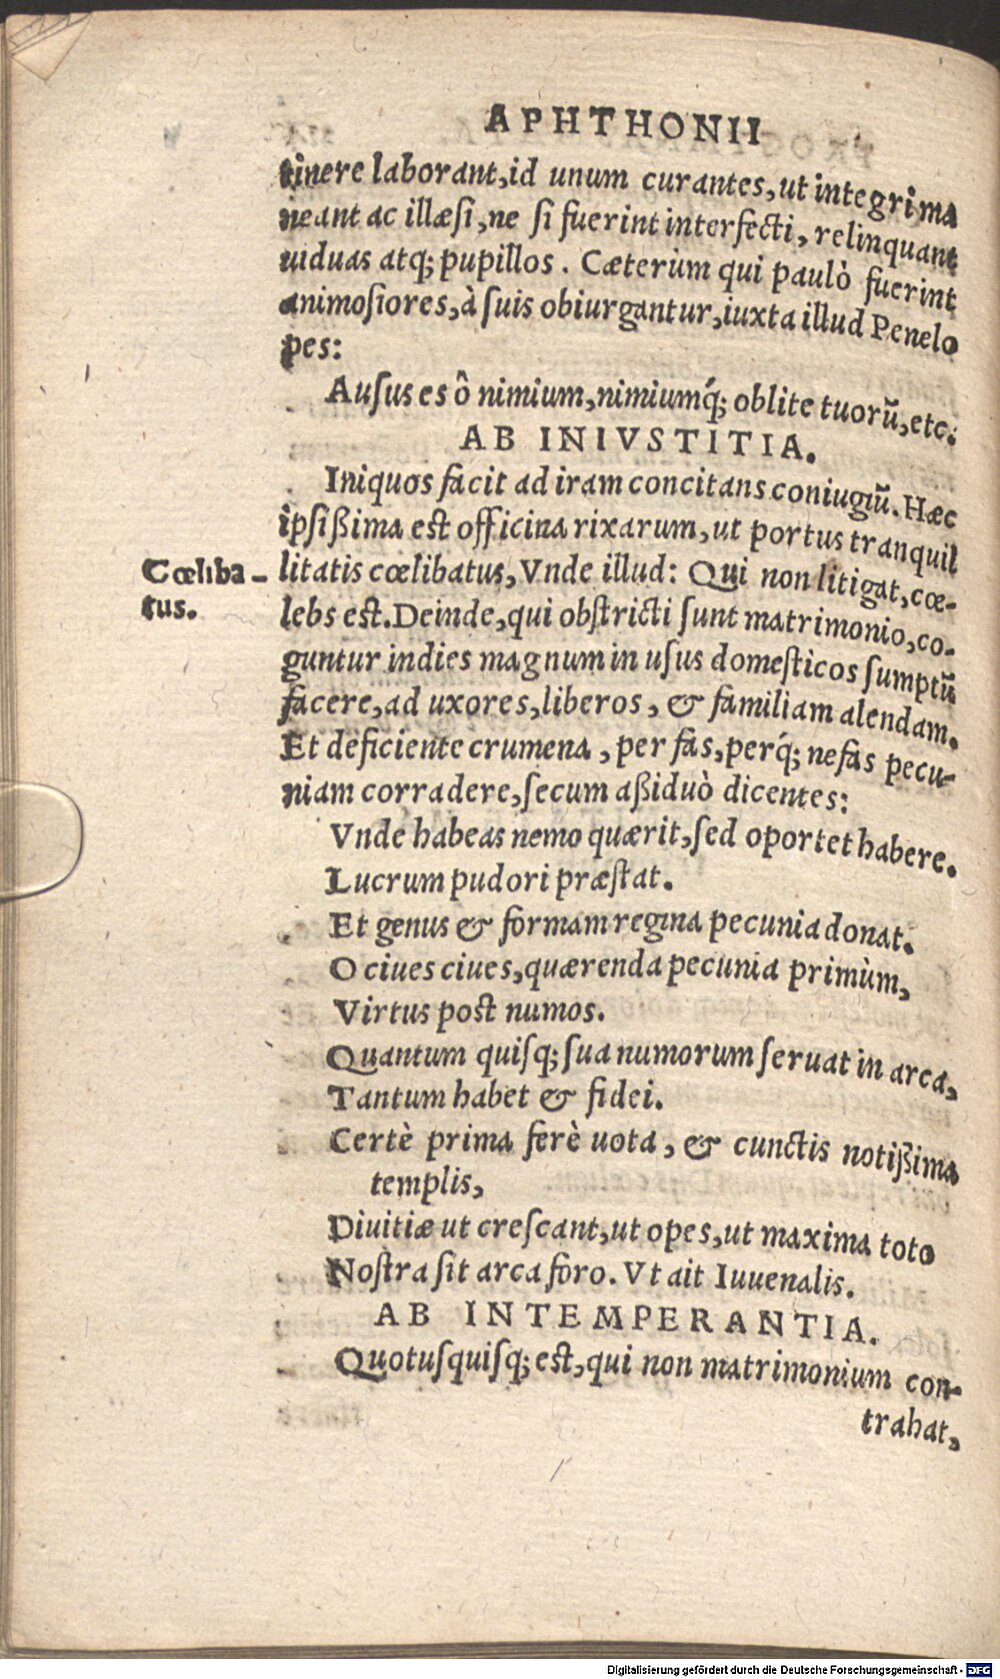 APHTHONII
tinere laborant, id unum curantes, ut integri ma
neant ac illæsi, ne si fuerint interfecti, relinquant
uiduas atq; pupillos. Cæterùm qui paulò fuerint
animosiores, à suis obiurgantur, iuxta illud Penelo
pes:
Ausus es ô nimium, nimiumq́; oblite tuorū, etc.
AB INIVSTITIA.
Iniquos facit ad iram concitans coniugiū. Hæc
ipsißima est officina rixarum, ut portus tranquil
Cœliba-
tus.
litatis cœlibatus, Vnde illud: Qui non litigat, cœ-
lebs est. Deinde, qui obstricti sunt matrimonio, co-
guntur indies magnum in usus domesticos sumptū
facere, ad uxores, liberos, & familiam alendam.
Et deficiente crumena, per fas, perq́; nefas pecu-
niam corradere, secum aßiduò dicentes:
Vnde habeas nemo quærit, sed oportet habere.
Lucrum pudori præstat.
Et genus & formam regina pecunia donat.
O ciues ciues, quærenda pecunia primùm,
Virtus post numos.
Quantum quisq; sua numorum seruat in arca,
Tantum habet & fidei.
Certè prima ferè uota, & cunctis notißima
templis,
Diuitiæ ut crescant, ut opes, ut maxima toto
Nostra sit arca foro. Vt ait Iuuenalis.
AB INTEMPERANTIA.
Quotusquisq; est, qui non matrimonium con-
trahat,
Digitalisierung gefördert durch die Deutsche Forschungsgemeinschaft - DFG